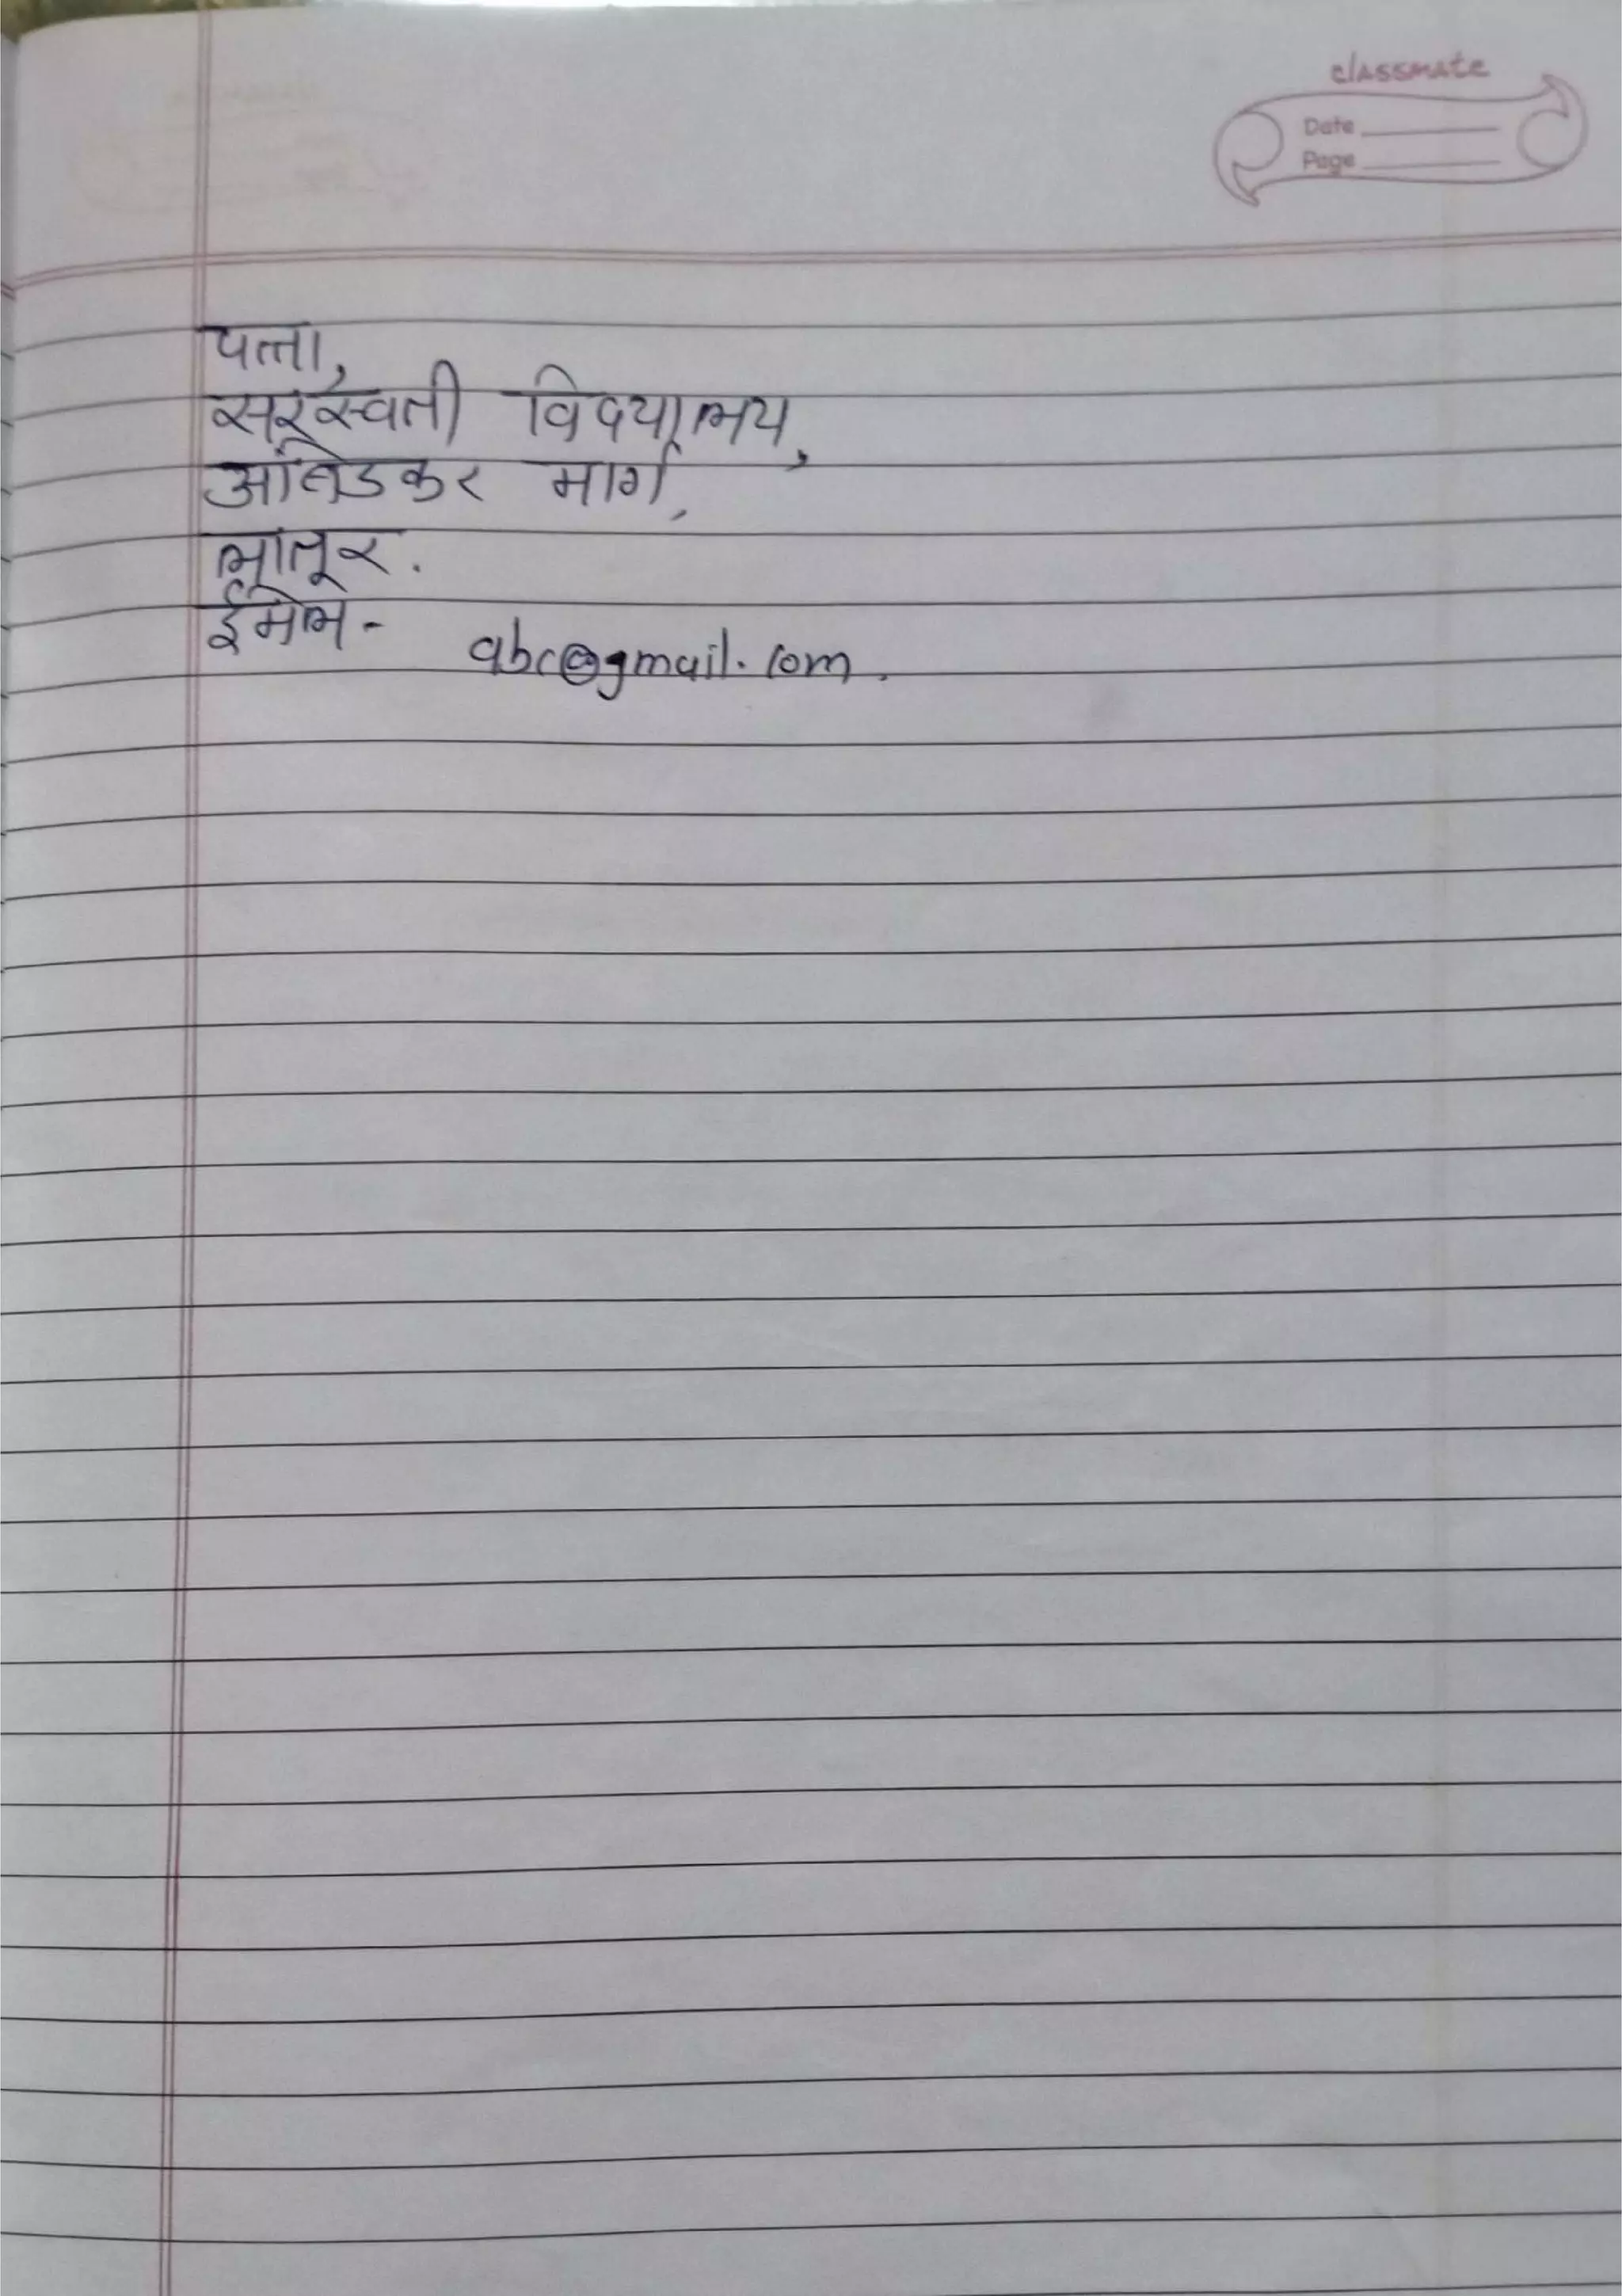 classmate
Date
Page
पत्ता,
सरस्वती विदयालय,
आंबेडकर मार्ग,
लातूर.
ईमेल- abc@gmail.com.